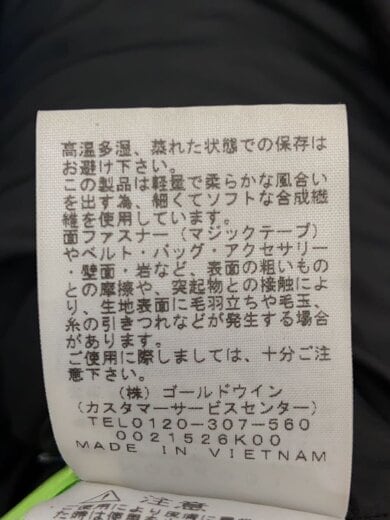 高温多湿、蒸れた状態での保存は
お避け下さい。
この製品は軽量で柔らかな風合い
を出す為、細くてソフトな合成繊
維を使用しています。
面ファスナー（マジックテープ）
やベルト・バッグ・アクセサリー
・壁面・岩など、表面の粗いもの
との摩擦や、突起物との接触によ
り、生地表面に毛羽立ちや毛玉、
糸の引きつれなどが発生する場合
があります。
ご使用に際しましては、十分ご注
意下さい。
（株）ゴールドウイン
（カスタマーサービスセンター）
TEL0120-307-560
0021526K00
MADE IN VIETNAM
注意